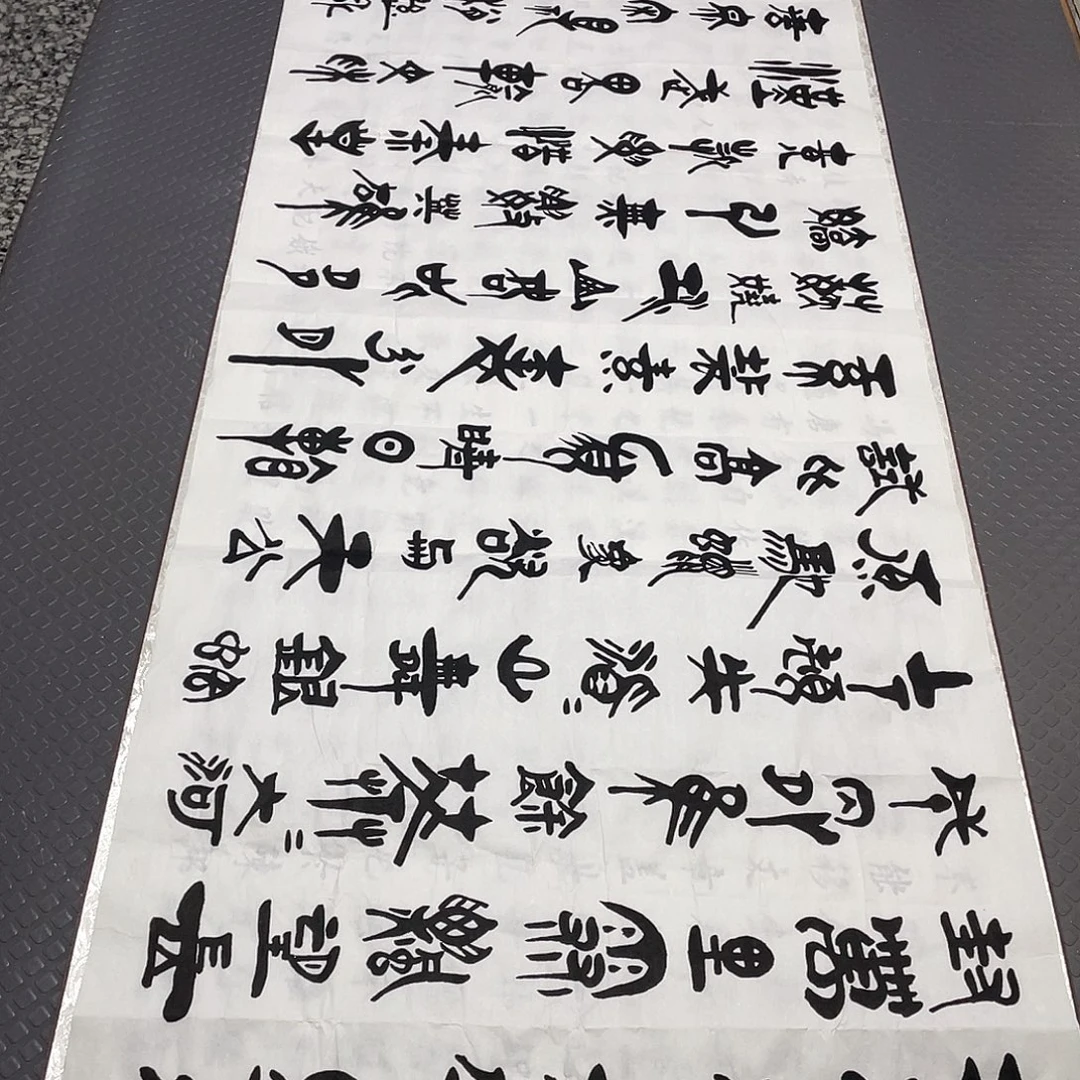 封萬里雪飄望長
城內外惟餘莽〻大河
上下頓失滔〻山舞銀蛇
原馳蠟象欲与天公
試比高須晴日看
紅裝素裹分外
妖嬈江山如此多
嬌引無數英雄
競折腰惜秦皇
漢武略輸文采